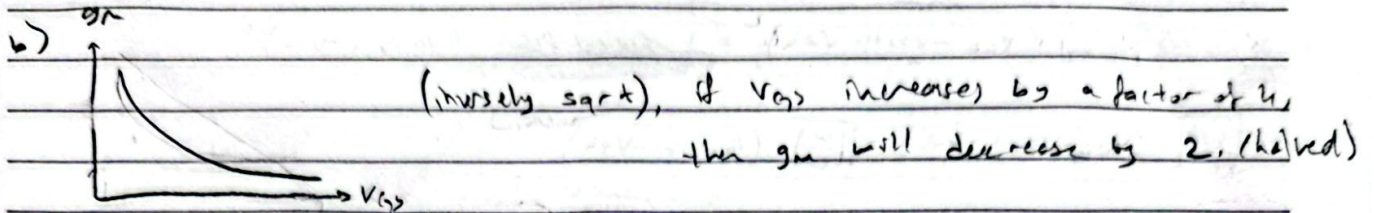 gm
b)
(inversely sqrt), if VGS increases by a factor of 4,
then gm will decrease by 2. (halved)
VGS